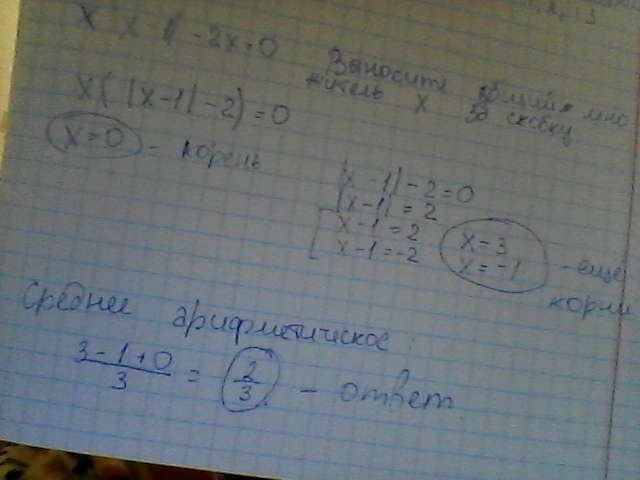 x |x-1| -2x=0
Выносите общий мно
житель x за скобку
x(|x-1|-2)=0
x=0 - корень
|x-1|-2=0
|x-1|=2
x-1=2
x-1=-2
x=3
x=-1
- еще
корни
Среднее арифметическое:
3-1+0
3
= 2/3 - ответ